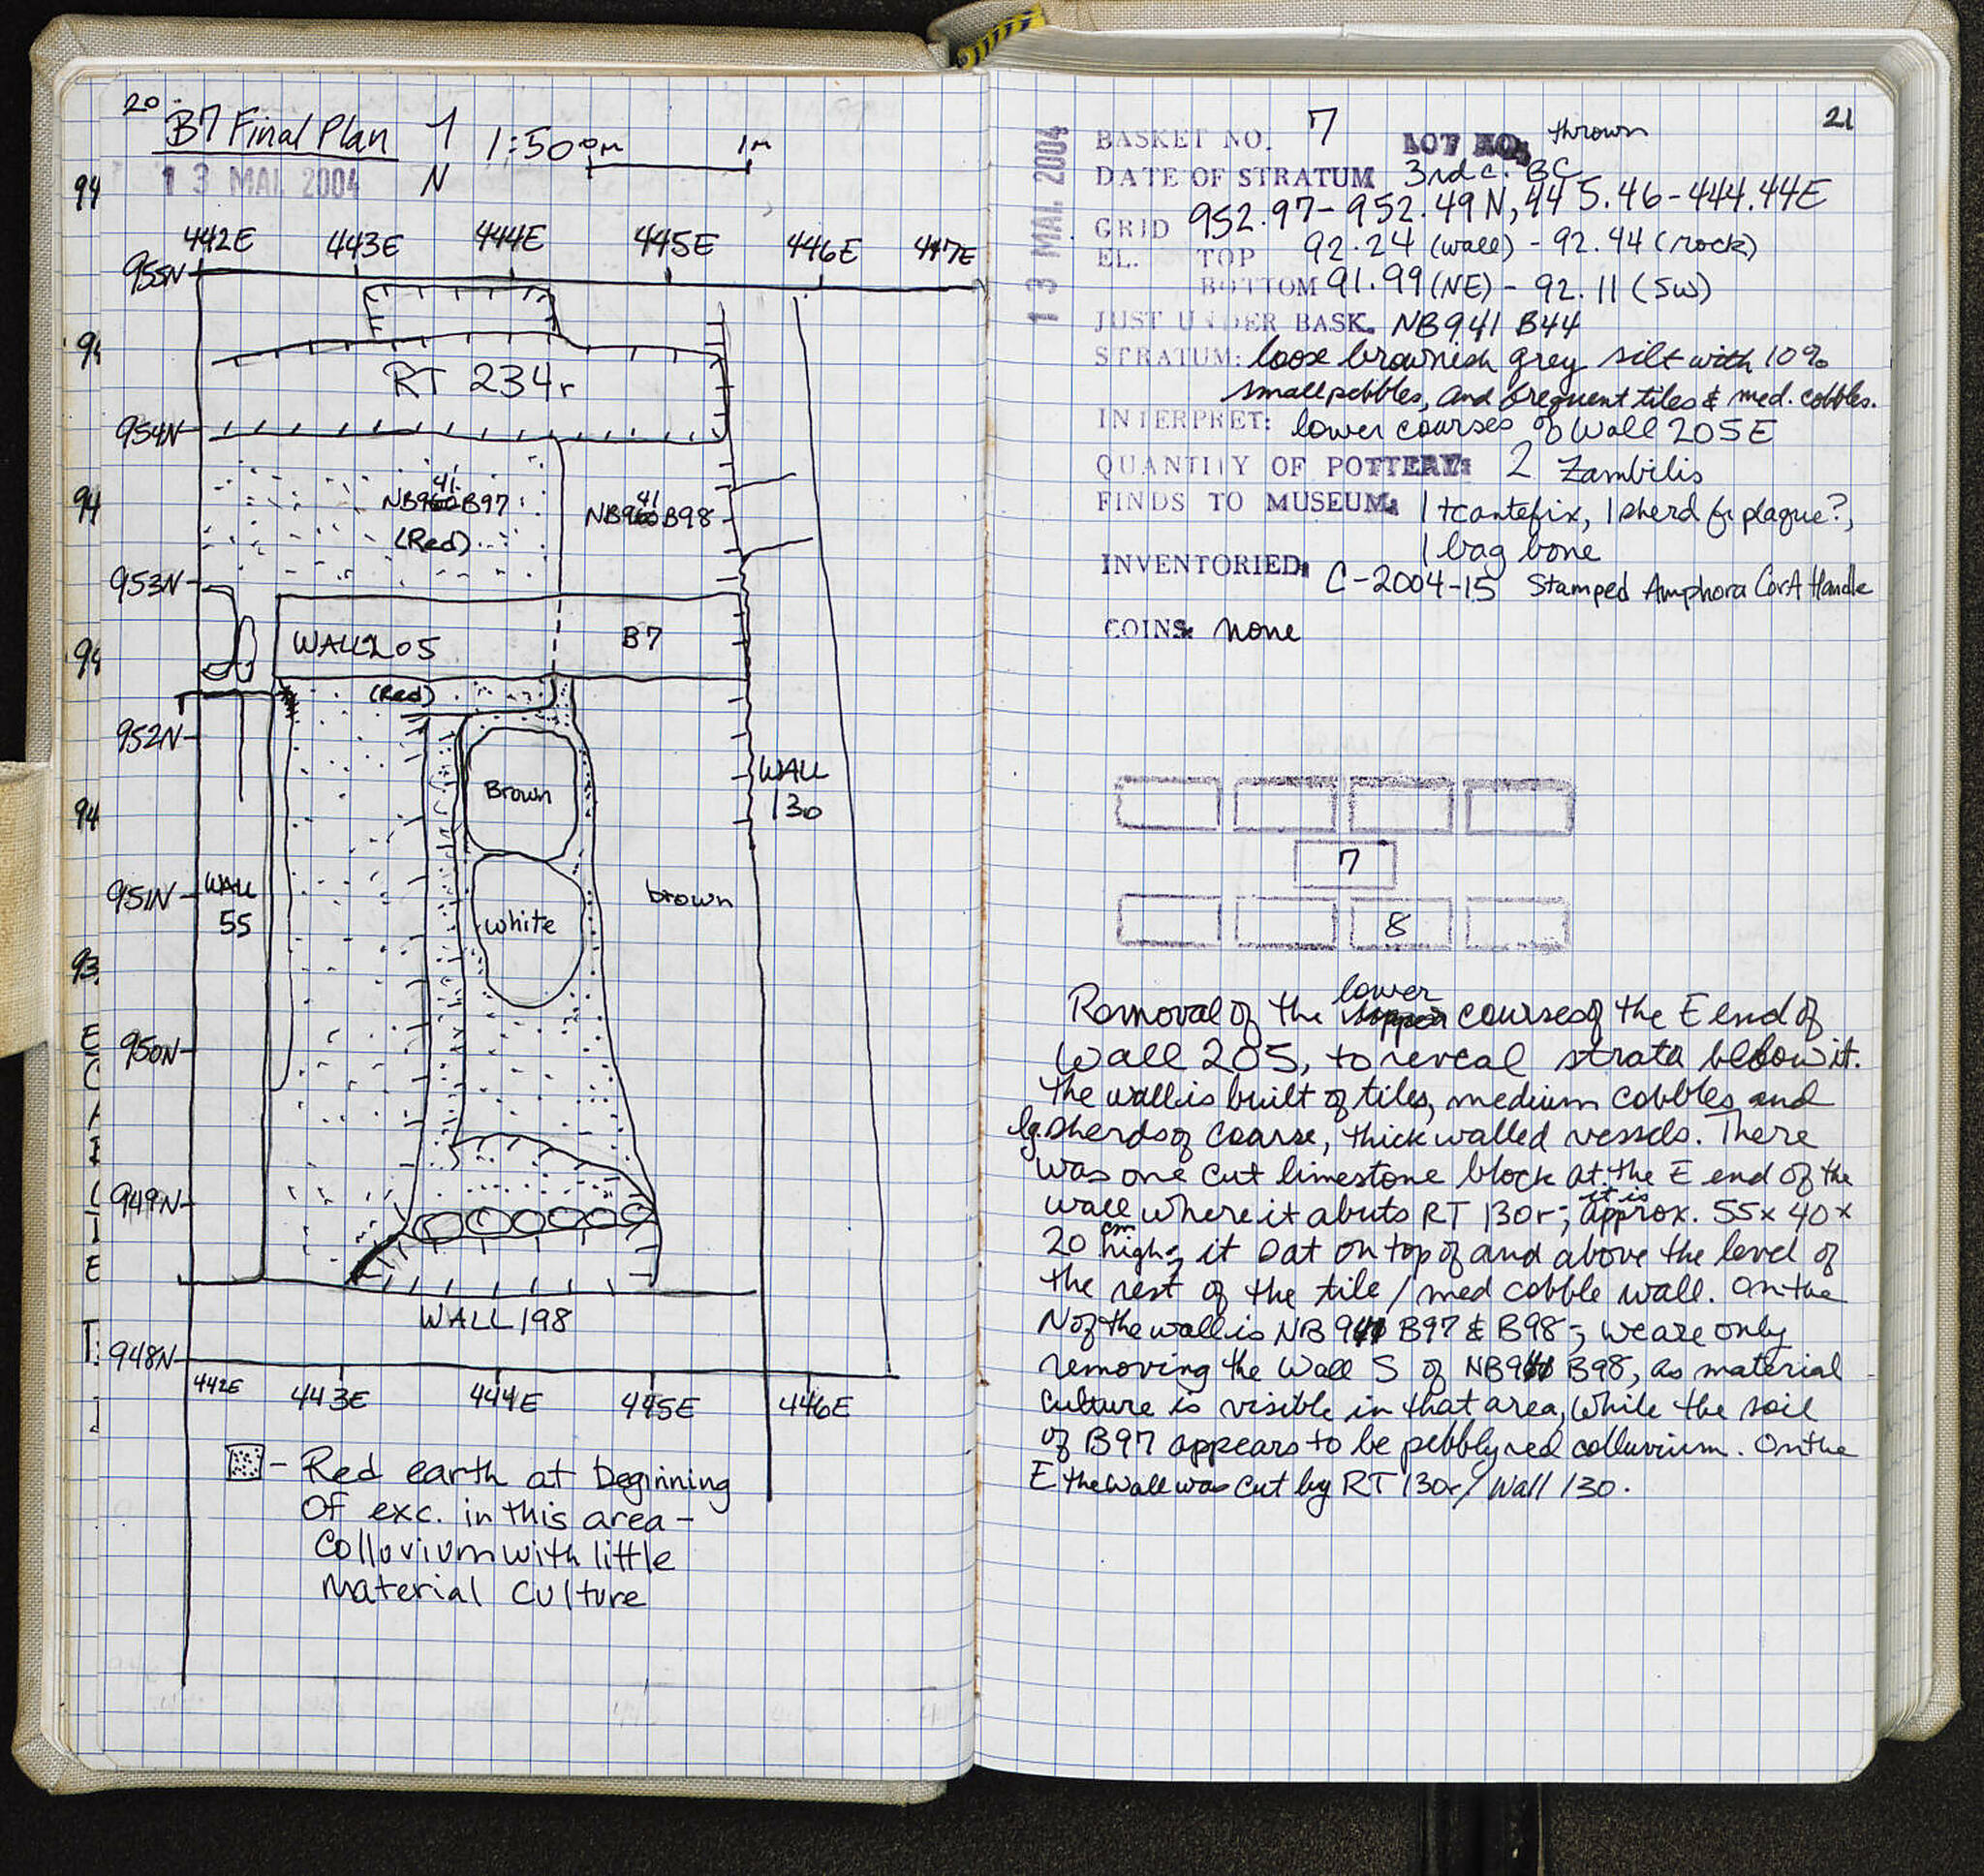 20
B7 Final Plan
1:50
0m
1m
N
13 MAI 2004
442E 443E 444E 445E 446E 447E
955N
RT 234r
954N
41 41
NB960B97 NB960B98
(Red)
953N
WALL 205 B7
(Red)
952N
Brown
WALL
130
951N
WALL
55
white
brown
950N
949N
WALL 198
948N
442E 443E 444E 445E 446E
- Red earth at beginning
of exc. in this area -
Colluvium with little
material culture
94
94
94
94
94
93
E
E
21
13 MAI 2004
BASKET NO. 7 LOT NO. thrown
DATE OF STRATUM 3rd c. BC
GRID 952.97-952.49N, 445.46-444.44E
EL. TOP 92.24 (wall) - 92.44 (rock)
BOTTOM 91.99 (NE) - 92.11 (SW)
JUST UNDER BASK. NB941 B44
STRATUM: loose brownish grey silt with 10%
small pebbles, and frequent tiles & med. cobbles.
INTERPRET: lower courses of Wall 205E
QUANTITY OF POTTERY: 2 Zambilis
FINDS TO MUSEUM: 1 tcantefix, 1 sherd fr plaque?,
1 bag bone
INVENTORIED: C-2004-15 Stamped Amphora CorA Handle
COINS: none
7
8
lower
Removal of the upper courses of the E end of
Wall 205, to reveal strata below it.
The wall is built of tiles, medium cobbles and
lg. sherds of coarse, thick walled vessels. There
was one cut limestone block at the E end of the
it is
wall where it abuts RT 130r; approx. 55x 40x
cm
20 high; it sat on top of and above the level of
the rest of the tile / med cobble wall. On the
N of the wall is NB 941 B97 & B98; we are only
removing the Wall S of NB941 B98, as material
culture is visible in that area, while the soil
of B97 appears to be pebbly red colluvium. On the
E the wall was cut by RT 130r / Wall 130.